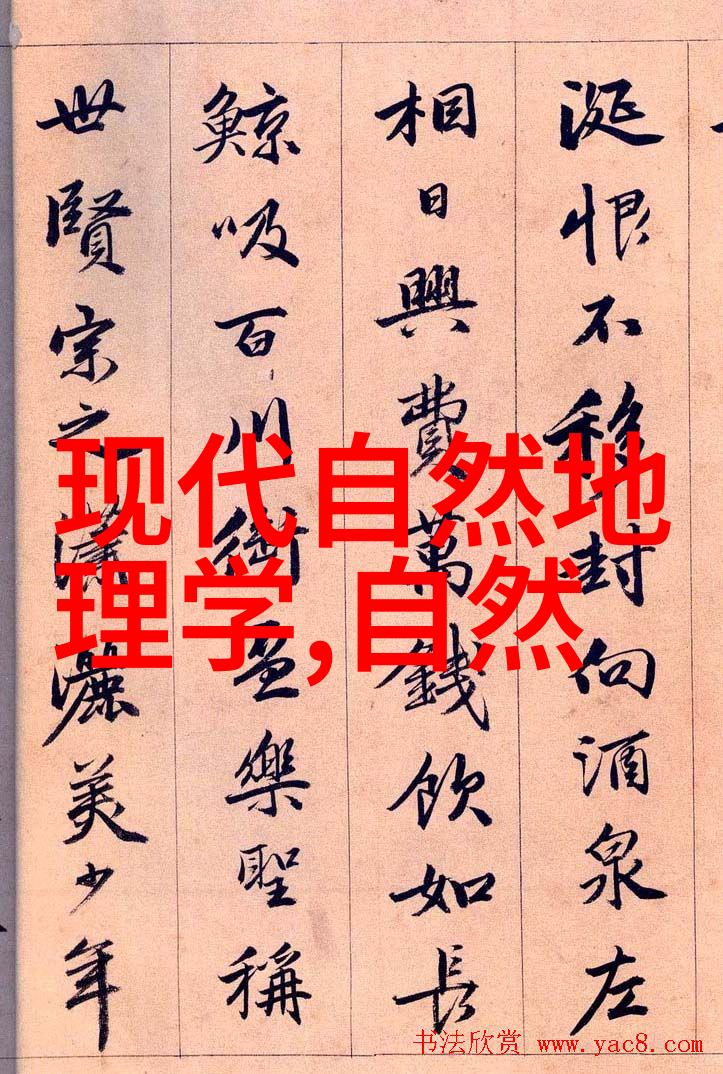 涎恨不移封向酒泉左
相日興費萬錢飲如長
鯨吸百川銜盃樂聖稱
世賢宗之瀟灑美少年
现代自然地
理学,自然
书法欣赏 www.yac8.com